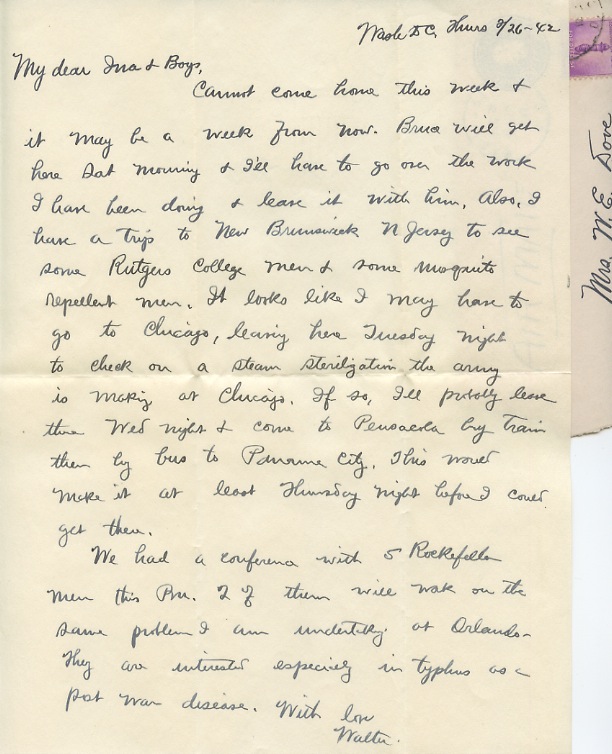 Wash DC, Thurs 3/26-42
My dear Ina & Boys,
Cannot come home this week &
it may be a week from now. Bruce will get
here Sat morning & I'll have to go over the work
I have been doing & leave it with him. Also, I
have a trip to New Brunswick N Jersy to see
some Rutgers College men & some mosquito
repellent men. It looks like I may have to
go to Chicago, leaving here Tuesday night
to check on a steam sterilization the army
is making at Chicago. If so, I'll probly leave
there Wed night & come to Pensacola by Train
then by bus to Panama City. This would
make it at least Thursday night before I could
get there.
We had a conference with 5 Rockefeller
men this Pm. 2 of them will wok on the
same problem I am undertakig at Orlando-
They are interested especially in typhus as a
post war disease. With love
Walter.
Mrs. W. E. Dove